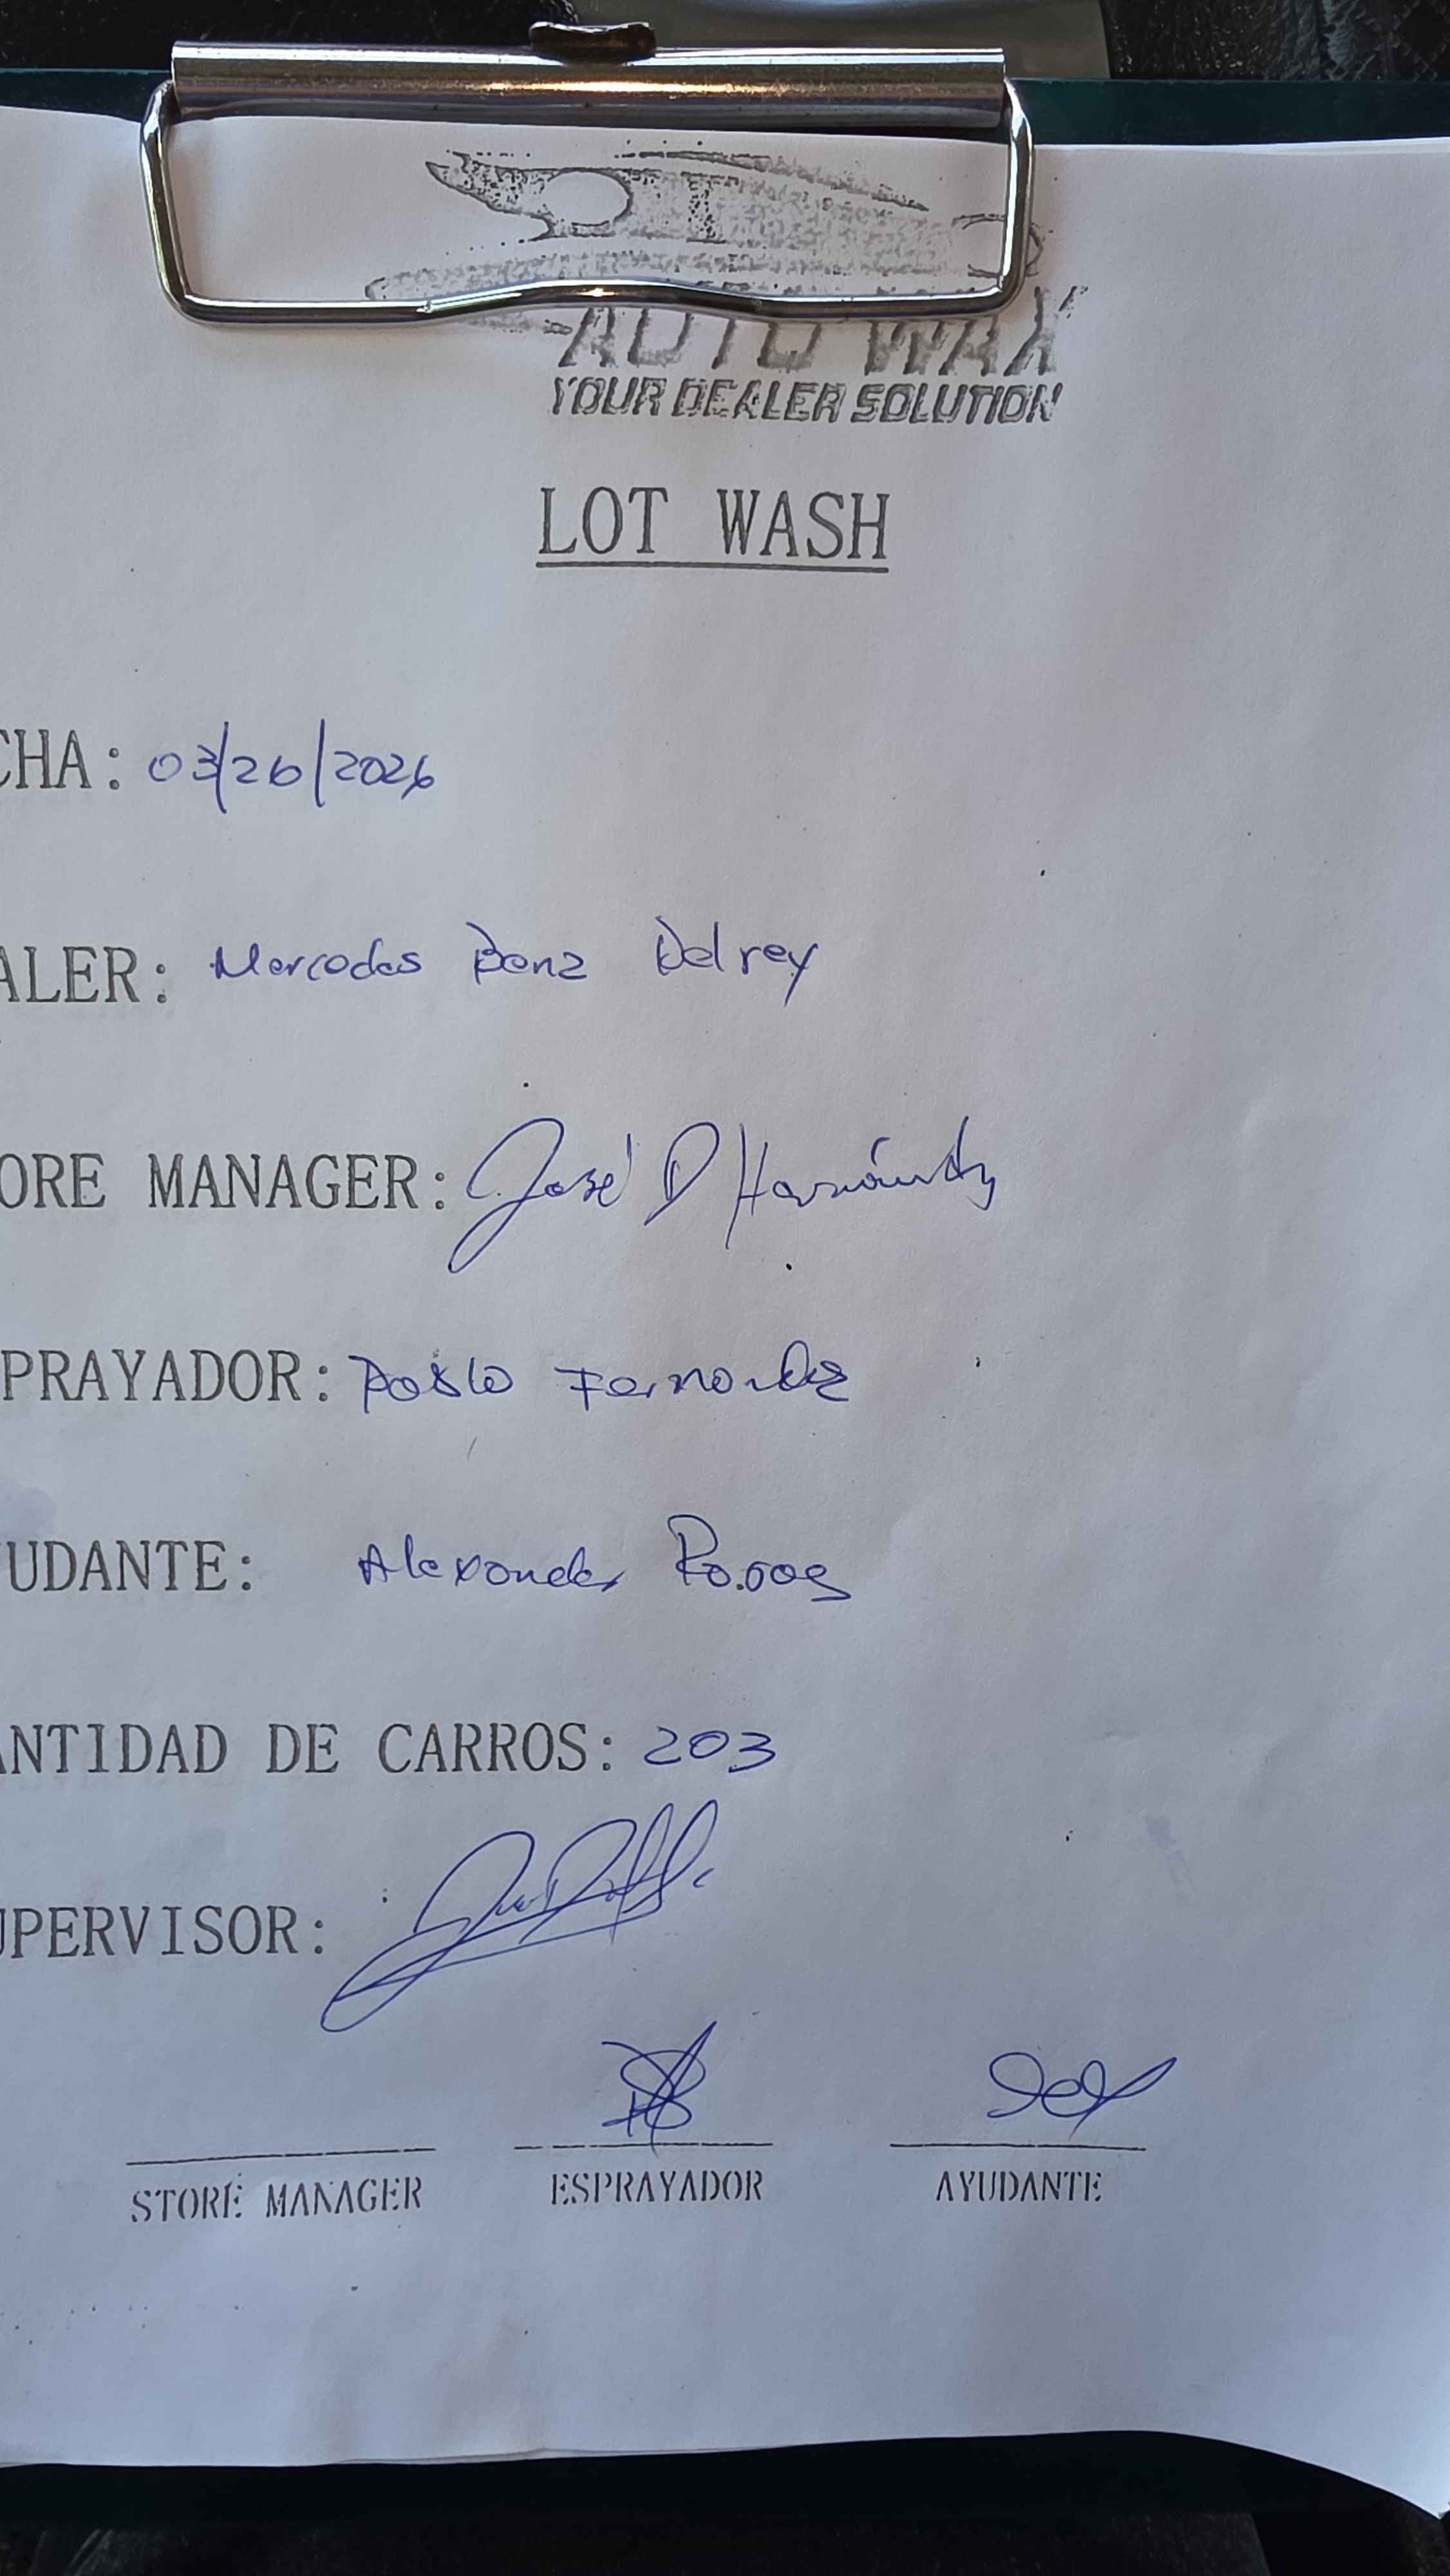 AUTO WAX
YOUR DEALER SOLUTION
LOT WASH
CHA: 03/26/2026
ALER: Mercedes Benz Delrey
ORE MANAGER: José D Hernández
PRAYADOR: Pablo Fernandez
UDANTE: Alexander
ANTIDAD DE CARROS: 203
UPERVISOR:
STORE MANAGER ESPRAYADOR AYUDANTE